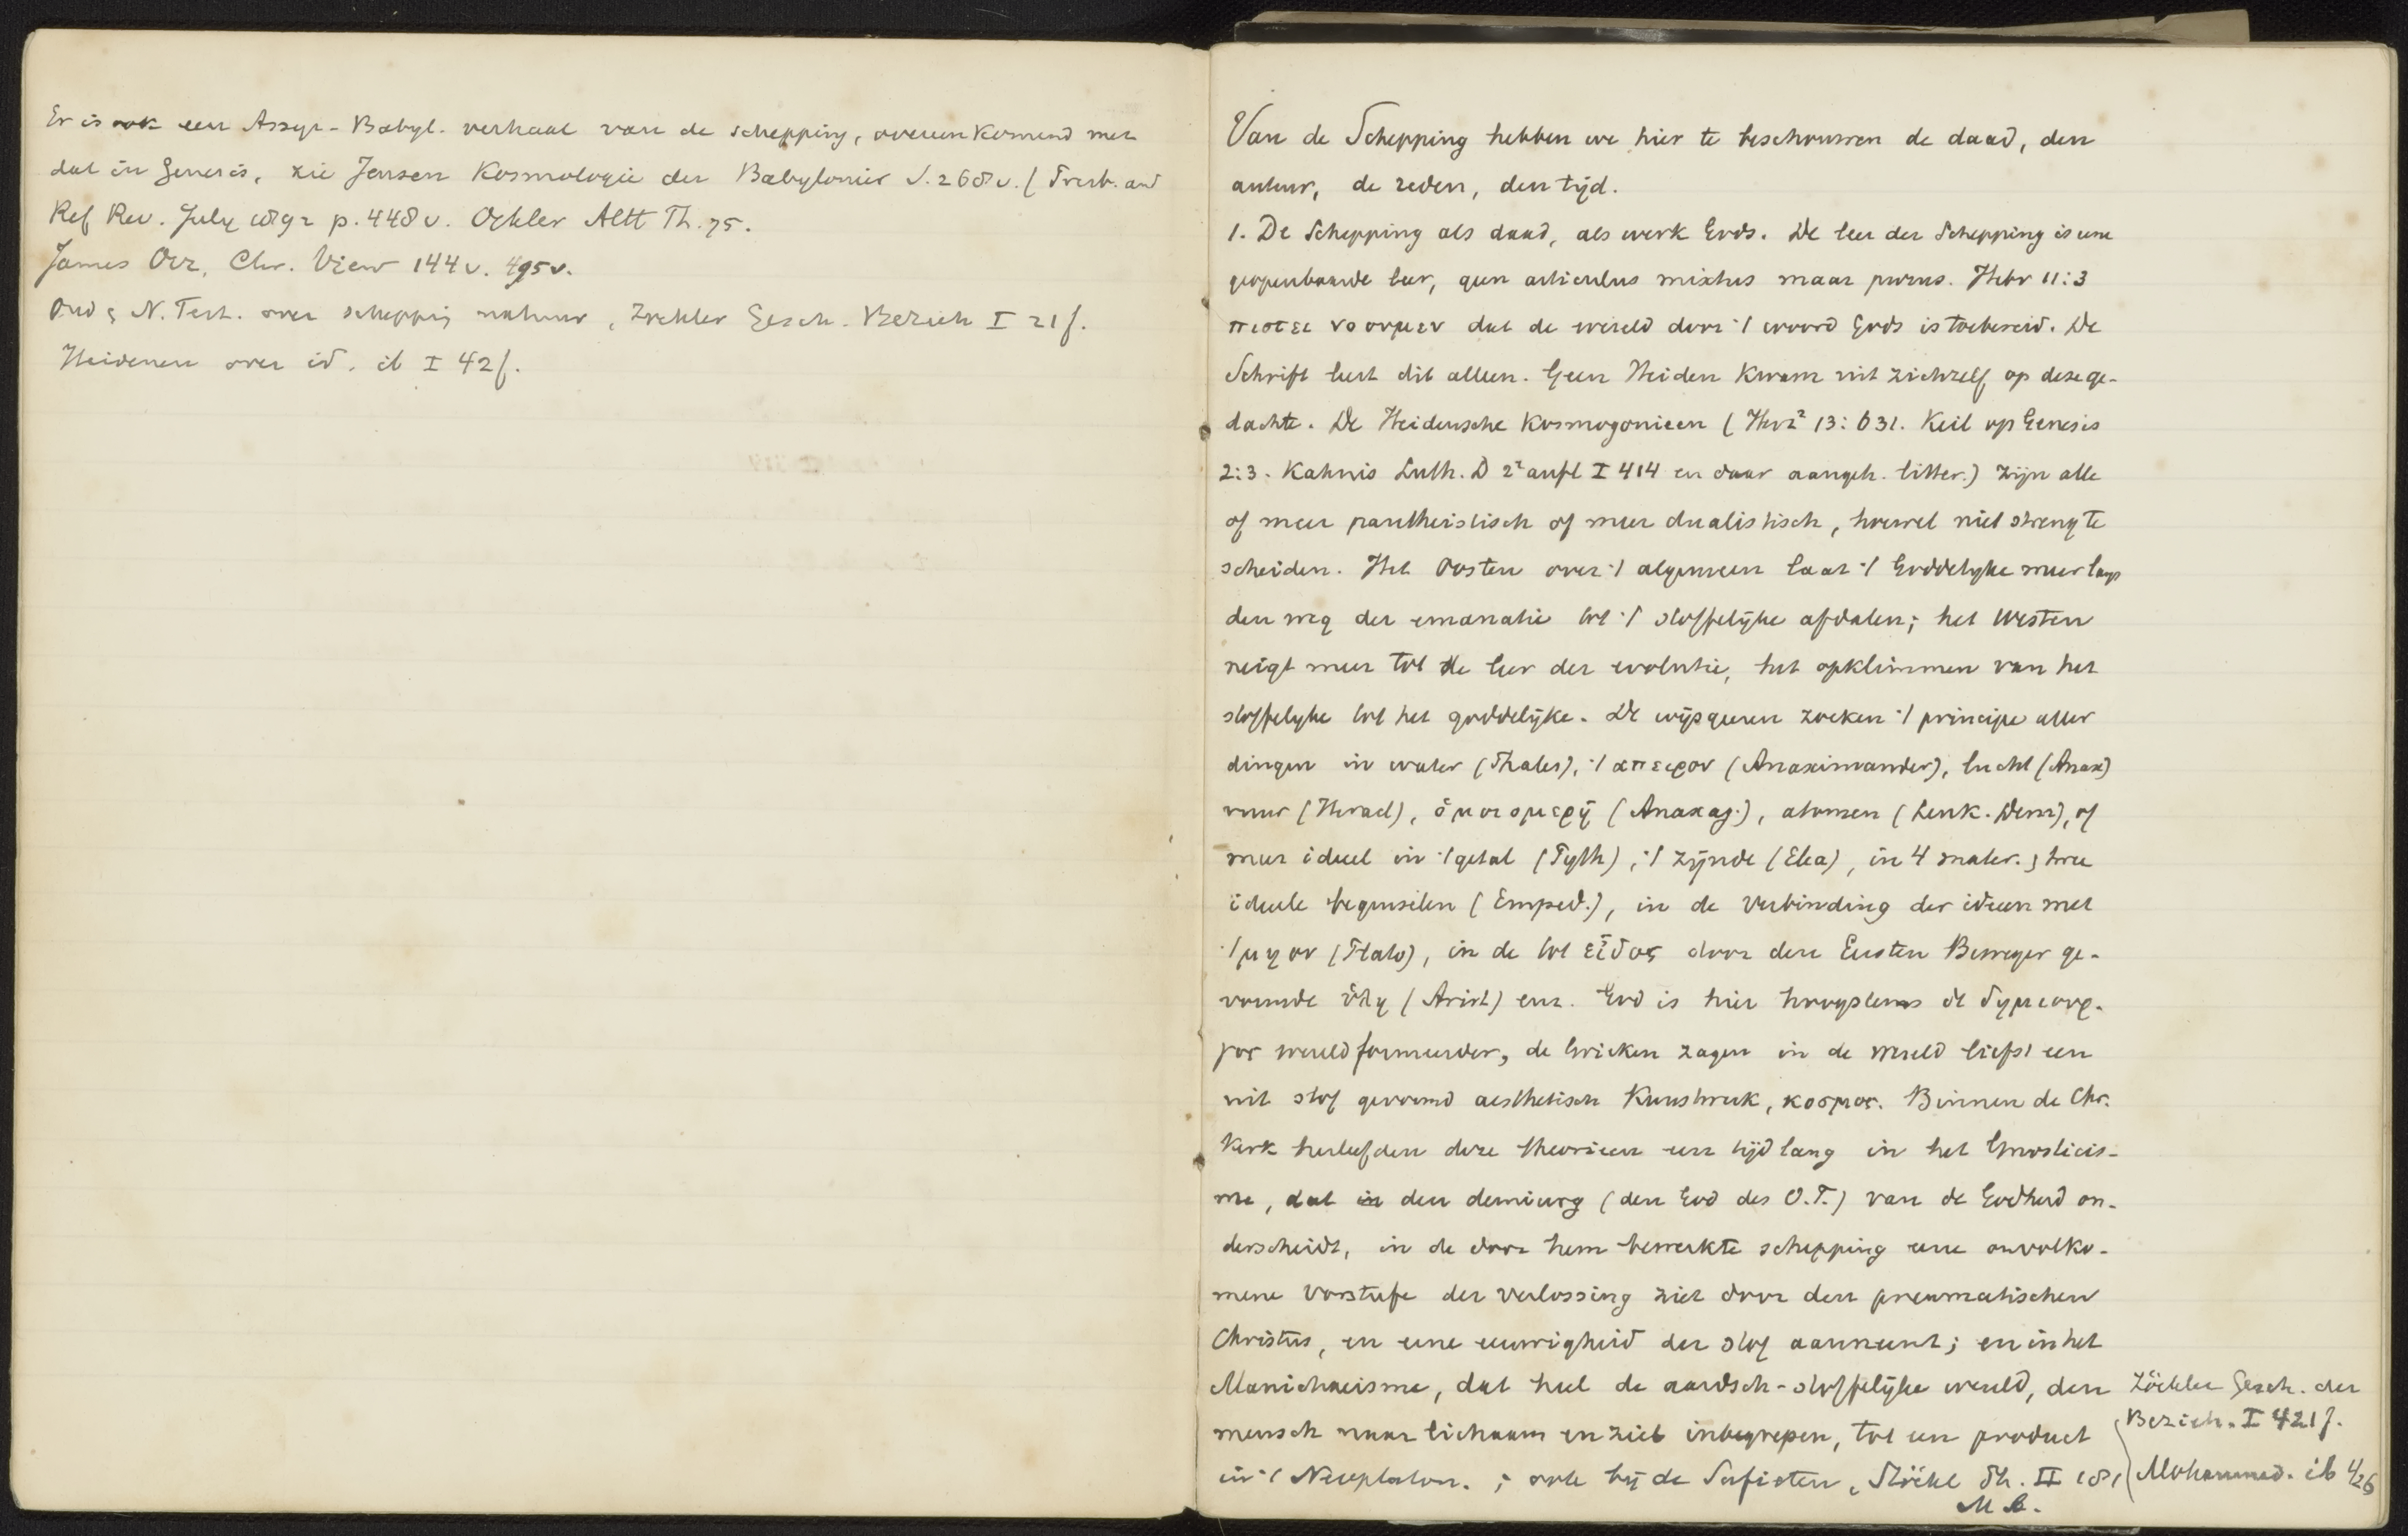 Er is ook een Assyr-Babyl. verhaal van de schepping, overeenkomend met
dat in Genesis, zie Jensen Kosmologie der Babylonier S. 268 v. (Presb. and
Ref Rev. July 1892 p. 448 v. Oehler Altt Th. 75.
James Orr, Chr. View 144 v. 495 v.
Oud & N. Test. over schepping natuur, Zöckler Gesch. Bezieh I 21 f.
Heidenen over id. ib I 42 f.
Van de Schepping hebben we hier te beschouwen de daad, den
auteur, de reden, den tijd.
1. De Schepping als daad, als werk Gods. De leer der Schepping is eene
geopenbaarde leer, geen articulus mixtus maar purus. Hebr 11:3
πιστει νοουμεν dat de wereld door 't woord Gods is toebereid. De
Schrift leert dit alleen. Geen Heiden kwam uit zichzelf op deze ge-
dachte. De Heidensche Kosmogonieen (Herz² 13: 631. Keil op Genesis
2:3. Kahnis Luth. D 2e aufl I 414 en daar aangeh. litter.) zijn alle
of meer pantheistisch of meer dualistisch, hoewel niet streng te
scheiden. Het Oosten over 't algemeen laat 't Goddelijke meer langs
den weg der emanatie tot 't stoffelijke afdalen; het Westen
neigt meer tot de leer der evolutie, het opklimmen van het
stoffelijke tot het goddelijke. De wijsgeeren zoeken 't principe aller
dingen in water (Thales), 't απειρον (Anaximander), lucht (Anax)
vuur (Heracl), ὁμοιομερῆ (Anaxag.), atomen (Leuk. Dem), of
meer ideeel in 't getal (Pyth), 't zijnde (Elea), in 4 mater. & twee
ideeele beginselen (Emped.), in de verbinding der ideeen met
't μη ον (Plato), in de tot εἶδος door den Eersten Beweger ge-
vormde ὕλη (Arist) enz. God is hier hoogstens de δημιουρ-
γος wereldformeerder, de Grieken zagen in de wereld liefst een
uit stof gevormd aesthetisch Kunstwerk, κοσμος. Binnen de Chr.
Kerk herleefden deze theorieen een tijd lang in het Gnosticis-
me, dat in den demiurg (den God des O.T.) van de Godheid on-
derscheidt, in de door hem bewerkte schepping eene onvolko-
mene voorstufe der verlossing ziet door den pneumatischen
Christus, en eene eeuwigheid der stof aanneemt; en in het
Manichaeisme, dat heel de aardsch-stoffelijke wereld, den
mensch naar lichaam en ziel inbegrepen, tot een product
in 't Neoplaton. ; ook bij de Sufisten, Stöckl Ph. II 181
M b.
Zöckler Gesch. der
Bezieh. I 421 f.
Mohammed. ib 426